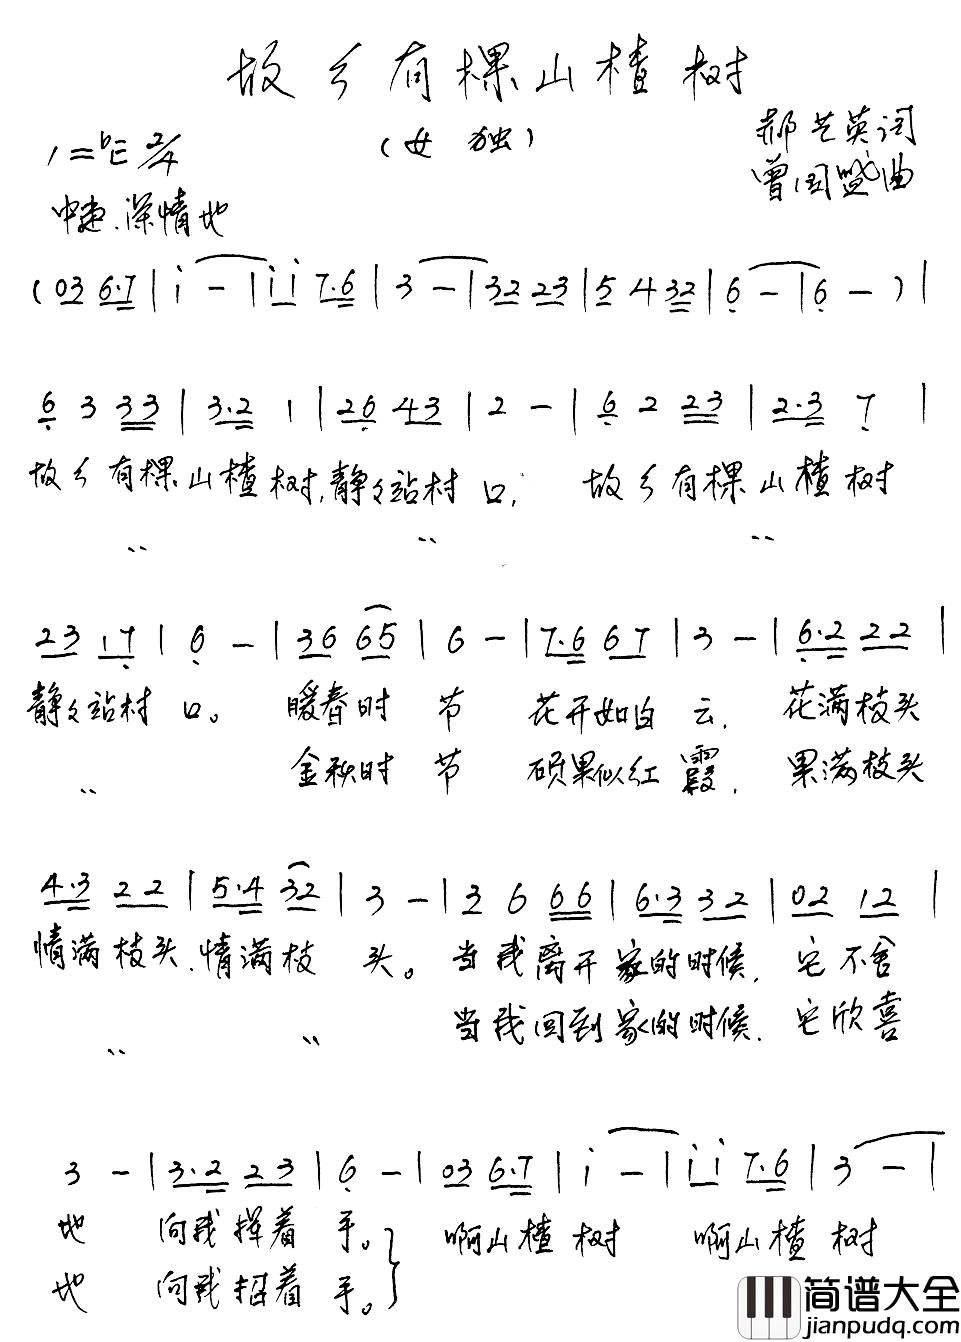 故乡有棵山楂树
(女独)
1=♭E 2/4
郝艺英词
曾国盛曲
中速.深情地
(03 6·7 | i - | i i 7·6 | 3 - | 32 23 | 5 4 32 | 6 - | 6 - ) |
6 3 33 | 3·2 1 | 26 43 | 2 - | 6 2 23 | 2·3 7 |
故乡有棵山楂树,静々站村口, 故乡有棵山楂树
〃 〃 〃
23 17 | 6 - | 36 65 | 6 - | 7·6 67 | 3 - | 6·2 22 |
静々站村口。 暖春时节 花开如白云, 花满枝头
〃 金秋时节 硕果似红霞, 果满枝头
4·3 22 | 5·4 32 | 3 - | 3 6 66 | 6·3 32 | 02 12 |
情满枝头,情满枝头。当我离开家的时候, 它不舍
〃 〃 当我回到家的时候, 它欣喜
3 - | 3·2 23 | 6 - | 03 6·7 | i - | i i 7·6 | 3 - |
地 向我挥着手。 啊山楂树 啊山楂树
地 向我招着手。
简谱大全
jianpudq.com